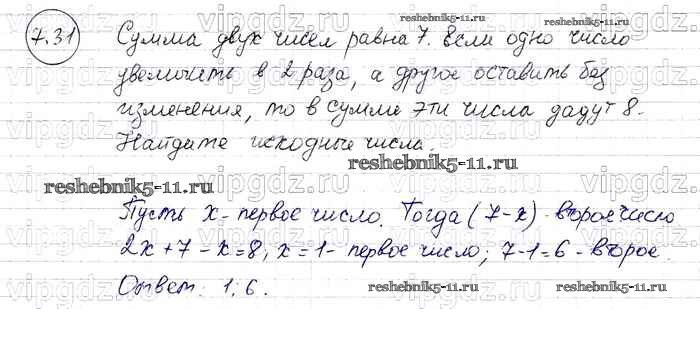 7.31
Сумма двух чисел равна 7. Если одно число
увеличить в 2 раза, а другое оставить без
изменения, то в сумме эти числа дадут 8.
Найдите исходные числа.
Пусть x - первое число. Тогда (7-x) - второе число
2x+7-x=8, x=1 - первое число; 7-1=6 - второе.
Ответ: 1; 6.
reshebnik5-11.ru
reshebnik5-11.ru
reshebnik5-11.ru
reshebnik5-11.ru
reshebnik5-11.ru
vipgdz.ru